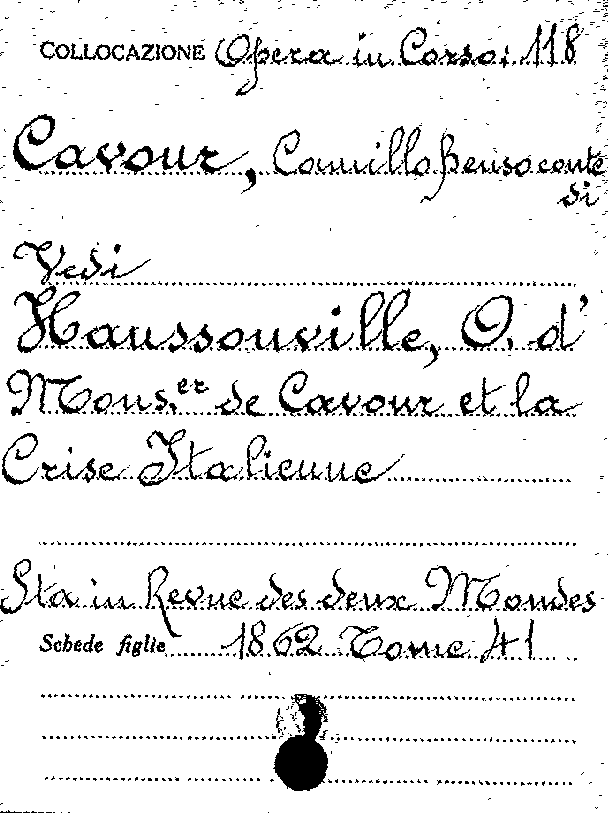 COLLOCAZIONE Opera in Corso: 118
Cavour, Camillo Benso conte
di
Vedi
Haussonville, O. d'
Mons.er de Cavour et la
Crise Italienne
Sta in Revue des deux Mondes
Schede figlie 1862 Tome 41